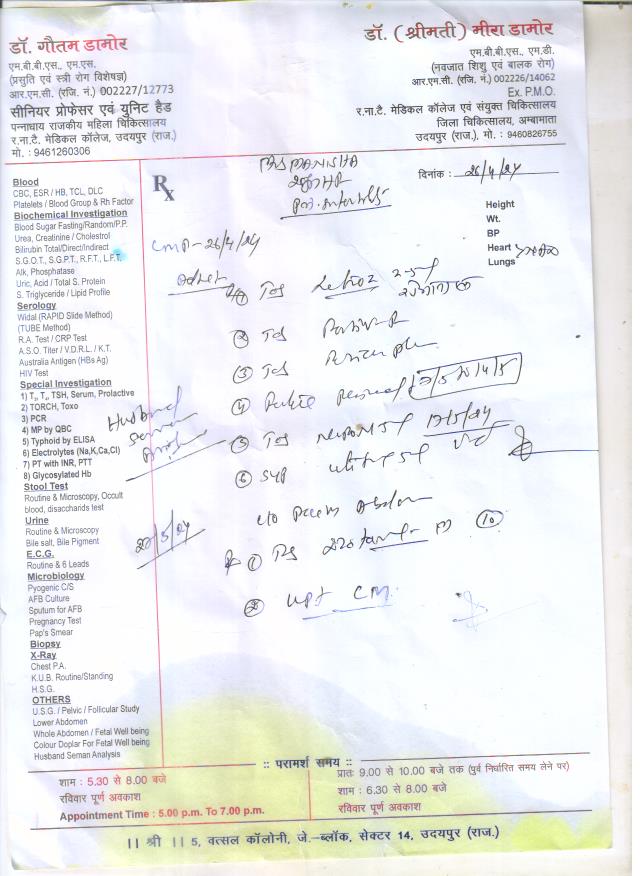 डॉ. गौतम डामोर
एम.बी.बी.एस., एम.एस.
(प्रसुति एवं स्त्री रोग विशेषज्ञ)
आर.एम.सी. (रजि. नं.) 002227/12773
सीनियर प्रोफेसर एवं यूनिट हैड
पन्नाधाय राजकीय महिला चिकित्सालय
र.ना.टै. मेडिकल कॉलेज, उदयपुर (राज.)
मो. : 9461260306
डॉ. (श्रीमती) मीरा डामोर
एम.बी.बी.एस., एम.डी.
(नवजात शिशु एवं बालक रोग)
आर.एम.सी. (रजि. नं.) 002226/14062
Ex. P.M.O.
र.ना.टै. मेडिकल कॉलेज एवं संयुक्त चिकित्सालय
जिला चिकित्सालय, अम्बामाता
उदयपुर (राज.), मो. : 9460826755
Blood
CBC, ESR / HB, TCL, DLC
Platelets / Blood Group & Rh Factor
Biochemical Investigation
Blood Sugar Fasting/Random/P.P.
Urea, Creatinine / Cholestrol
Bilirubin Total/Direct/Indirect
S.G.O.T., S.G.P.T., R.F.T., L.F.T.
Alk, Phosphatase
Uric, Acid / Total S. Protein
S. Triglyceride / Lipid Profile
Serology
Widal (RAPID Slide Method)
(TUBE Method)
R.A. Test / CRP Test
A.S.O. Titer / V.D.R.L. / K.T.
Australia Antigen (HBs Ag)
HIV Test
Special Investigation
1) T₃, T₄, TSH, Serum, Prolactive
2) TORCH, Toxo
3) PCR
4) MP by QBC
5) Typhoid by ELISA
6) Electrolytes (Na,K,Ca,Cl)
7) PT with INR, PTT
8) Glycosylated Hb
Stool Test
Routine & Microscopy, Occult
blood, disaccharids test
Urine
Routine & Microscopy
Bile salt, Bile Pigment
E.C.G.
Routine & 6 Leads
Microbiology
Pyogenic C/S
AFB Culture
Sputum for AFB
Pregnancy Test
Pap's Smear
Biopsy
X-Ray
Chest P.A.
K.U.B. Routine/Standing
H.S.G.
OTHERS
U.S.G. / Pelvic / Follicular Study
Lower Abdomen
Whole Abdomen / Fetal Well being
Colour Doplar For Fetal Well being
Husband Seman Analysis
Rx
MRS MANISHA
दिनांक : 26/4/24
Height
Wt.
BP
Heart
Lungs
LMP-26/4/24
① Tab Letroz 2.5
② Tab
③ Tab
④
⑤ Tab 17/5/24
⑥ Syp
Husband
20/5/24
① ⑩
② UPT
:: परामर्श समय ::
शाम : 5.30 से 8.00 बजे
रविवार पूर्ण अवकाश
Appointment Time : 5.00 p.m. To 7.00 p.m.
प्रातः 9.00 से 10.00 बजे तक (पुर्व निर्धारित समय लेने पर)
शाम : 6.30 से 8.00 बजे
रविवार पूर्ण अवकाश
|| श्री || 5, वत्सल कॉलोनी, जे.-ब्लॉक, सेक्टर 14, उदयपुर (राज.)